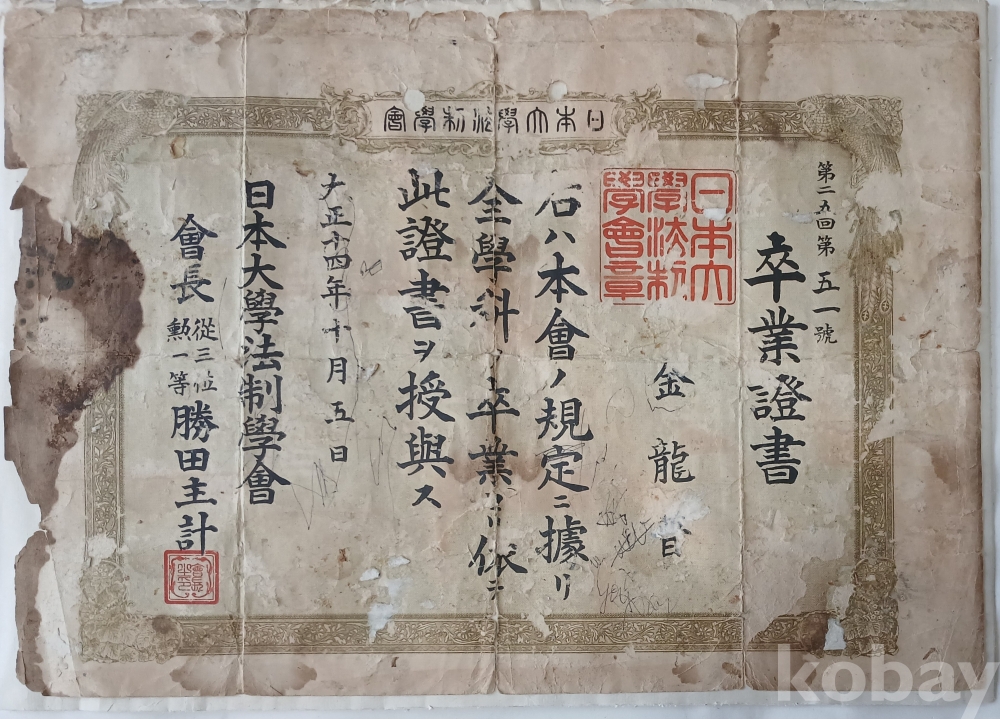 日本大學法制學會
第二五回第五一號
卒業證書
日本大
學法制
學會章
金龍
右ハ本會ノ規定ニ據リ
全學科ヲ卒業セリ依テ
此證書ヲ授與ス
大正十四年十月五日
日本大學法制學會
會長
從三位
勲一等
勝田主計
kobay